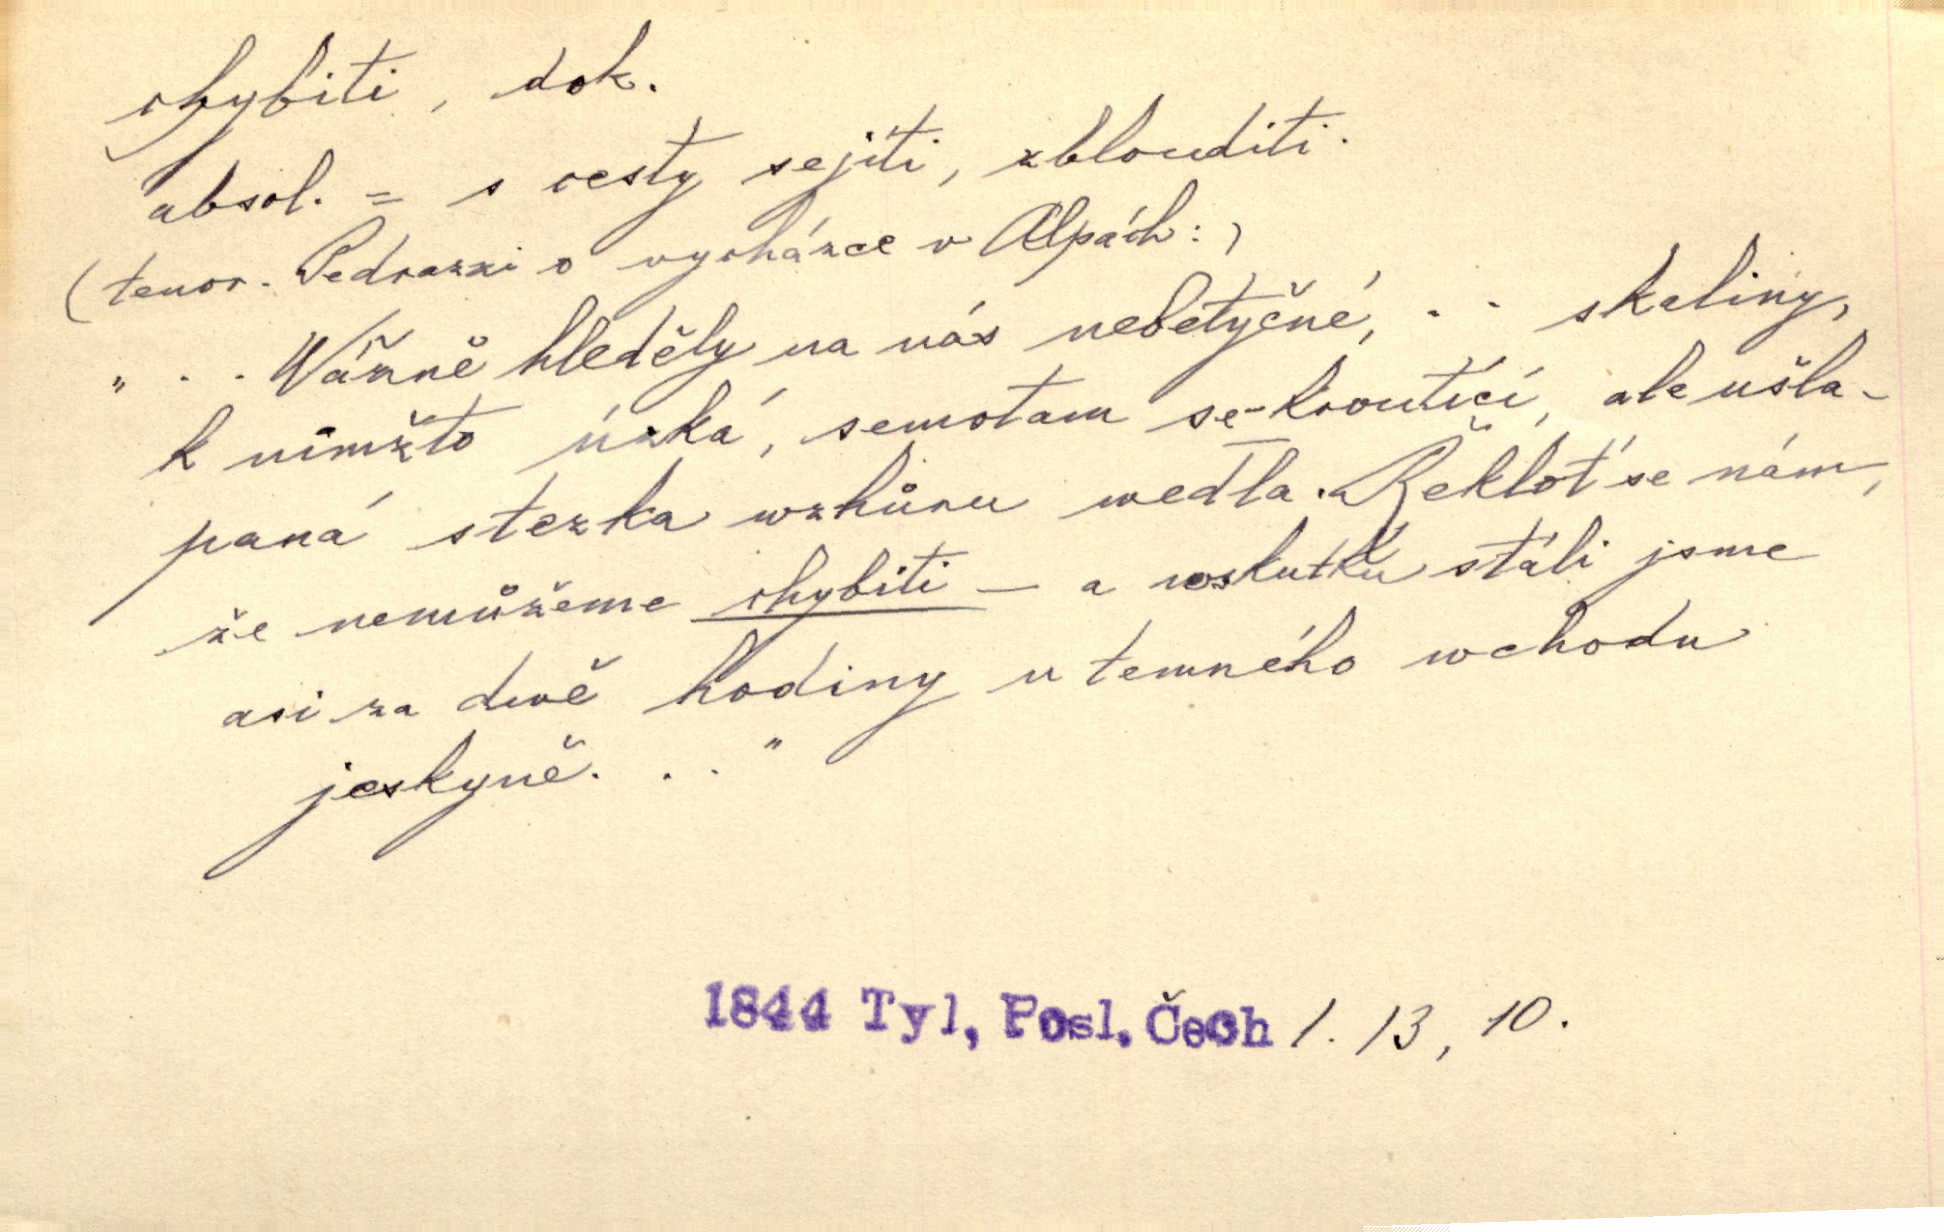 chybiti, dok.
absol. = s cesty sejíti, zblouditi.
(tenor. Pedrazzi o vycházce v Alpách:)
" . . Wážně hleděly na nás nebetyčné, . . skaliny,
k nimžto úzká, semotam se-kroutící, ale ušla-
paná stezka wzhůru wedla. Řekloť se nám,
že nemůžeme chybiti – a wskutku stáli jsme
asi za dwě hodiny u temného wchodu
jeskyně. . . "
1844 Tyl, Posl. Čech 1. 13, 10.